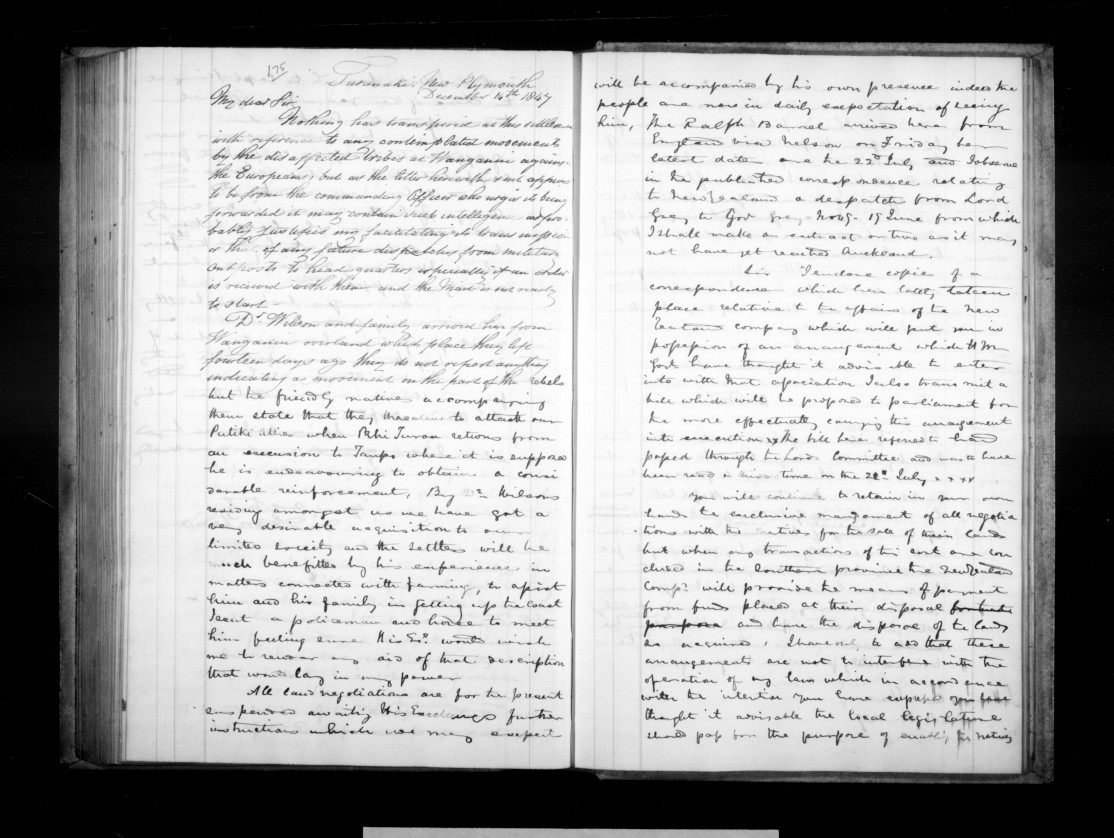 175
Taranaki. New Plymouth
December 14th 1847
My dear Sir
Nothing has transpired at this settlement
with reference to any contemplated movements
by the disaffected tribes at Wanganui against
the Europeans, but as the letter herewith sent appears
to be from the commanding Officer who urges its being
forwarded it may contain such intelligence as pro-
bably justifies my facilitating its transmission
or that of any future dispatches from military
outposts to head quarters especially if an order
is received with them and the Mail is not ready
to start.
Dr Wilson and family arrived here from
Wanganui overland which place they left
fourteen days ago they do not report anything
indicating a movement on the part of the rebels
but the friendly natives accompanying
them state that they threatens to attack our
Putiki allies when Pehi Turoa returns from
an excursion to Taupo where it is supposed
he is endeavouring to obtain a consi
derable reinforcement, By Dr Wilsons
residing amongst us we have got a
very desirable acquisition to our
limited society and the settlers will be
much benefitted by his experience in
matters connected with farming, to assist
him and his family in getting up the coast
I sent a policeman and horse to meet
him feeling sure His Ex. would wish
me to render any aid of that description
that would lay in my power
All land negotiations are for the present
suspended awaiting His Excellencys further
instructions which we may expect
will be accompanied by his own presence indeed the
people are now in daily expectation of seeing
him, The Ralph Bernal arrived here from
England via Nelson on Friday her
latest dates are the 22d July and I observe
in the published correspondence relating
to New Zealand a despatch from Lord
Grey to Gov Grey No 65. 19 June from which
I shall make an extract or two as it may
not have yet reached Auckland.
Sir "I enclose copies of a
correspondence which has lately taken
place relative to the affairs of the New
Zealand company which will put you in
possession of an arrangement which H M
Govt have thought it advisable to enter
into with that association I also transmit a
bill which will be proposed to parliament for
the more effectually carrying this arrangement
into execution xx The bill here referred to had
passed through the Lords Committee and was to have
been read a third time on the 22d July x x x x
You will continue to retain in your own
hands the exclusive management of all negotia
tions with the natives for the sale of their lands
but when any transactions of this sort are con
cluded in the southern province the New Zealand
Compy will provide the means of payment
from funds placed at their disposal for that
purpose and have the disposal of the lands
so acquired, I have only to add that these
arrangements are not to interfere with the
operation of any laws which in accordance
with the intention you have expressed you
thought it advisable the local legislature
should pass for the purpose of enabling the natives